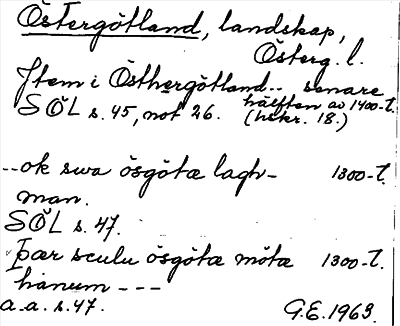 Östergötland, landskap,
Österg. l.
Item i Östhergötland.. senare
hälften av 1400-t.
SÖL s. 45, not 26. (hskr. 18.)
--ok swa ösgötæ lagh- 1300-t.
man.
SÖL s. 47.
Þær sculu ösgötæ möta 1300-t.
hanum ---
a.a. s. 47. G.E. 1963.